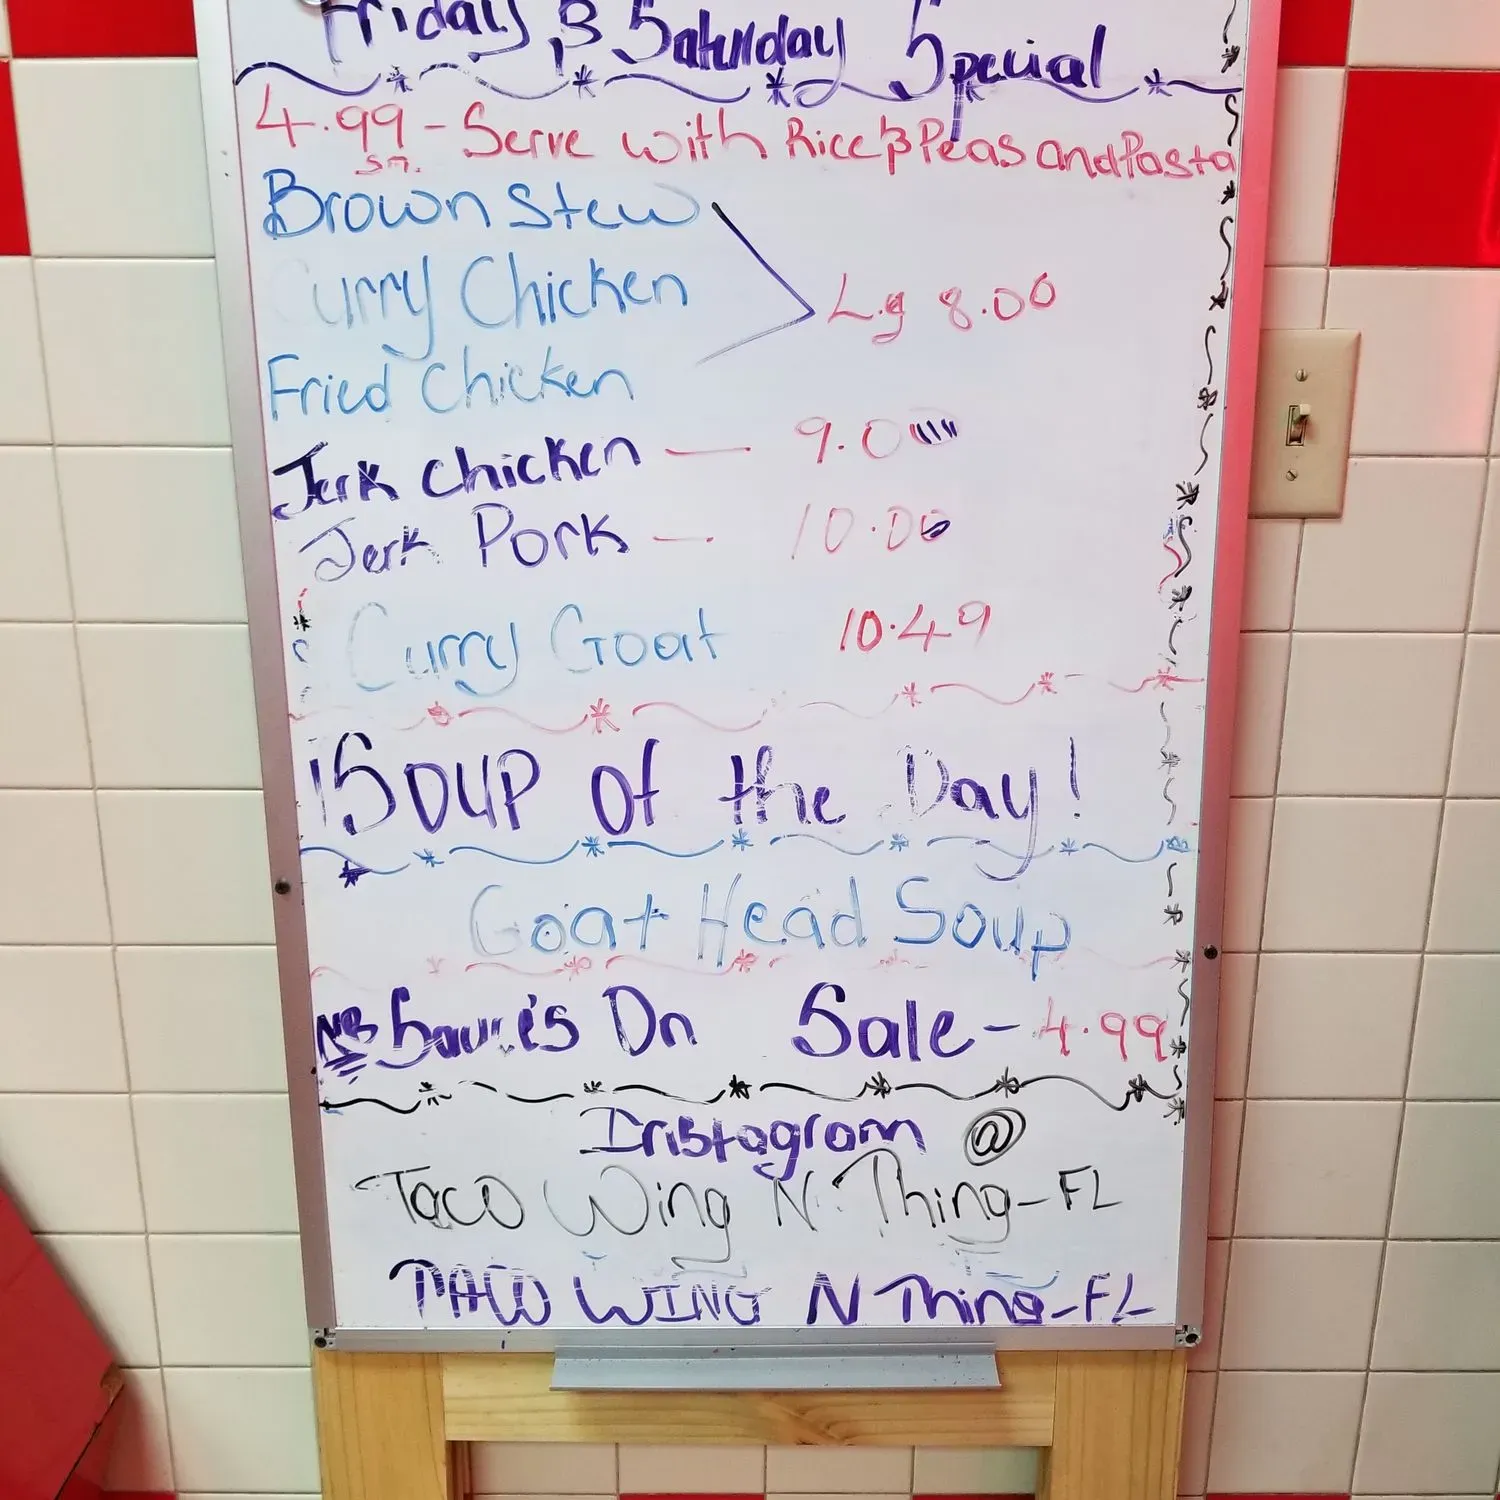 Friday & Saturday Special
4.99 - Serve with Rice & Peas and Pasta
sm.
Brown Stew
Curry Chicken
Lg 8.00
Fried Chicken
Jerk Chicken — 9.00
Jerk Pork — 10.00
Curry Goat 10.49
Soup Of the Day!
Goat Head Soup
NB Sauce's On Sale - 4.99
Instagram @
Taco Wing N Thing-FL
TACO WING N Thing-FL